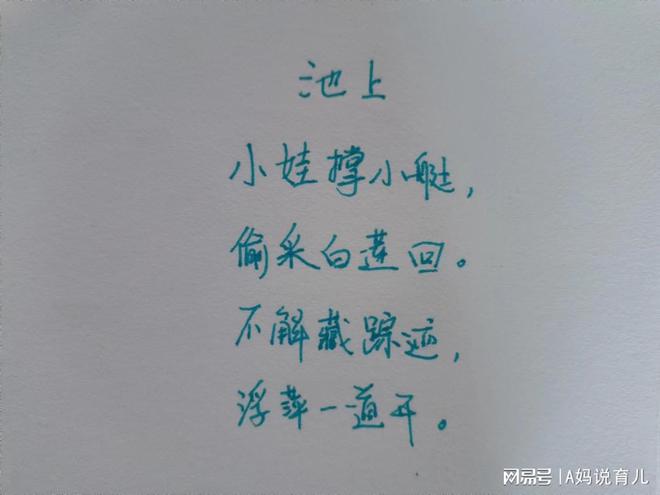 池上
小娃撑小艇，
偷采白莲回。
不解藏踪迹，
浮萍一道开。
网易号 | A妈说育儿